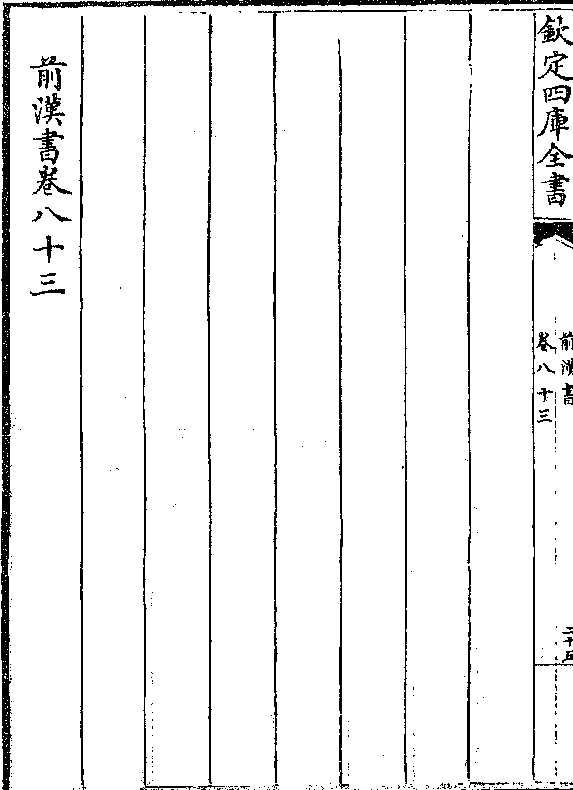 欽定四庫全書
前漢書
卷八十三
二十五
前漢書卷八十三